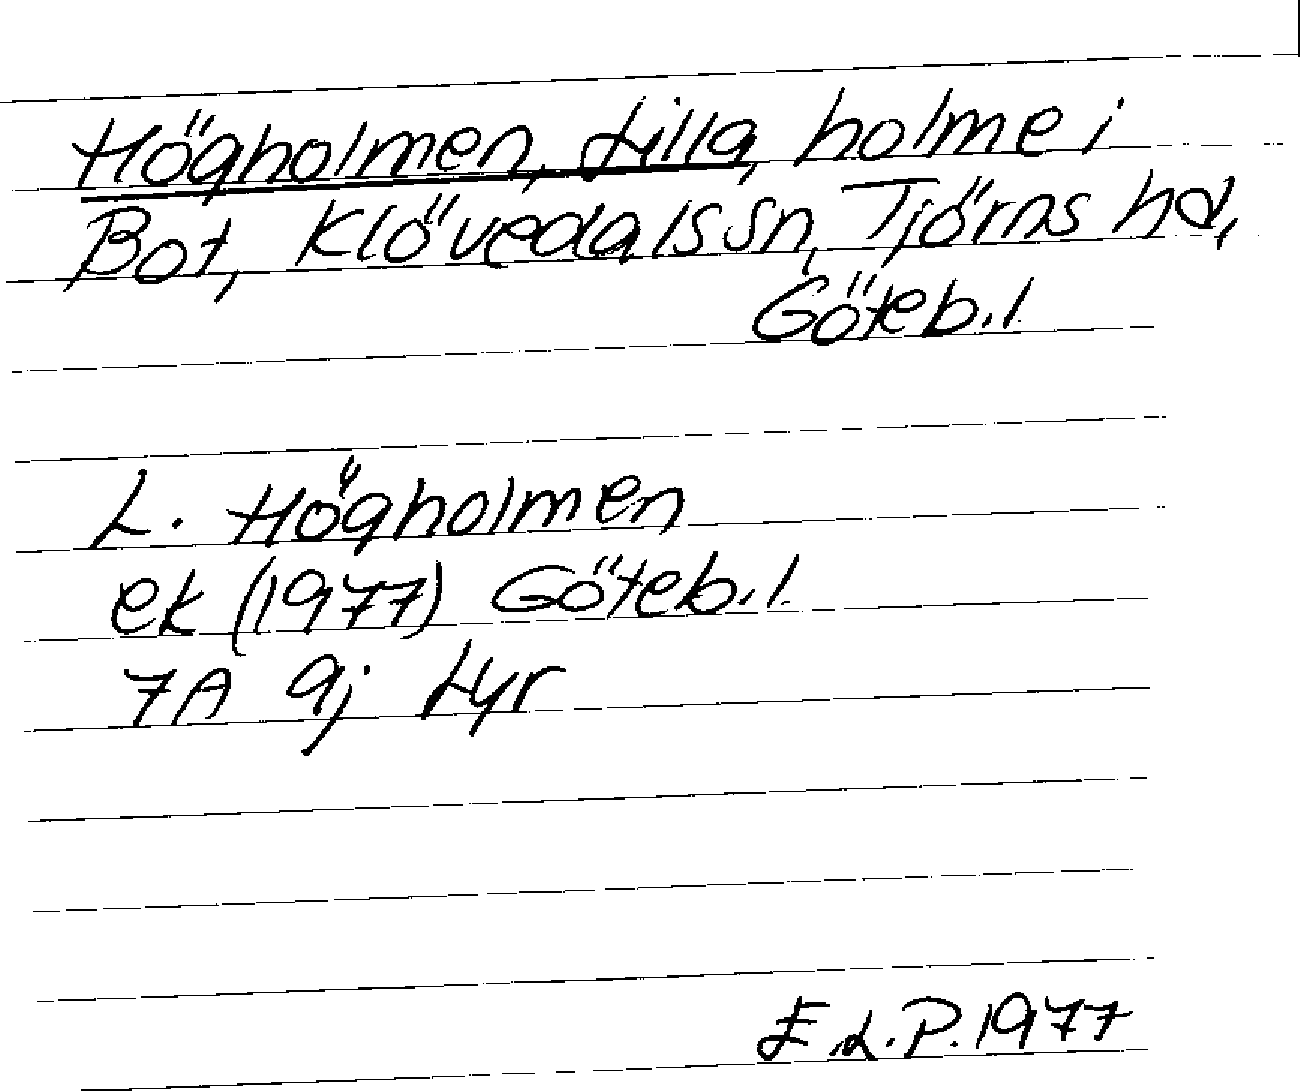 Högholmen, Lilla, holme i
Bot, Klövedals sn, Tjörns hd,
Göteb. l.
L. Högholmen
ek (1977) Göteb. l.
7A 9j Lyr
E.L.P. 1977